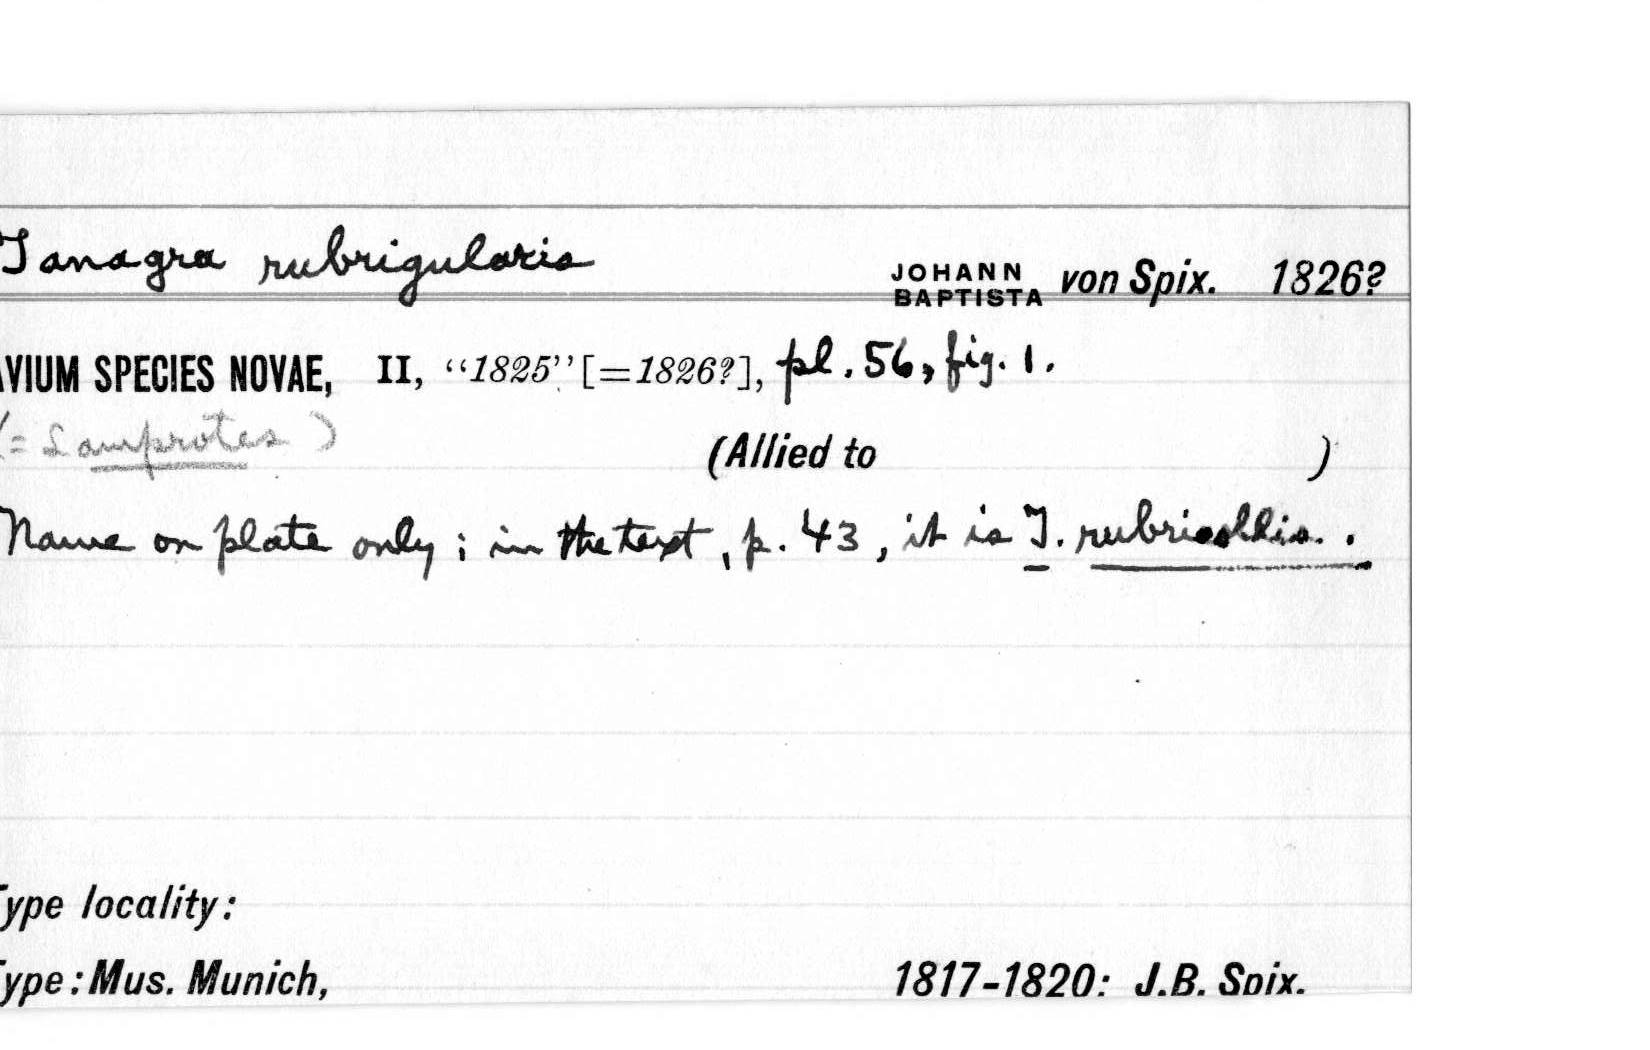 Tanagra rubrigularis JOHANN BAPTISTA von Spix. 1826?
AVIUM SPECIES NOVAE, II, “1825” [=1826?], pl. 56, fig. 1.
(= Lamprotes) (Allied to )
Name on plate only; in the text, p. 43, it is T. rubricollis.
Type locality:
Type: Mus. Munich, 1817-1820: J.B. Spix.